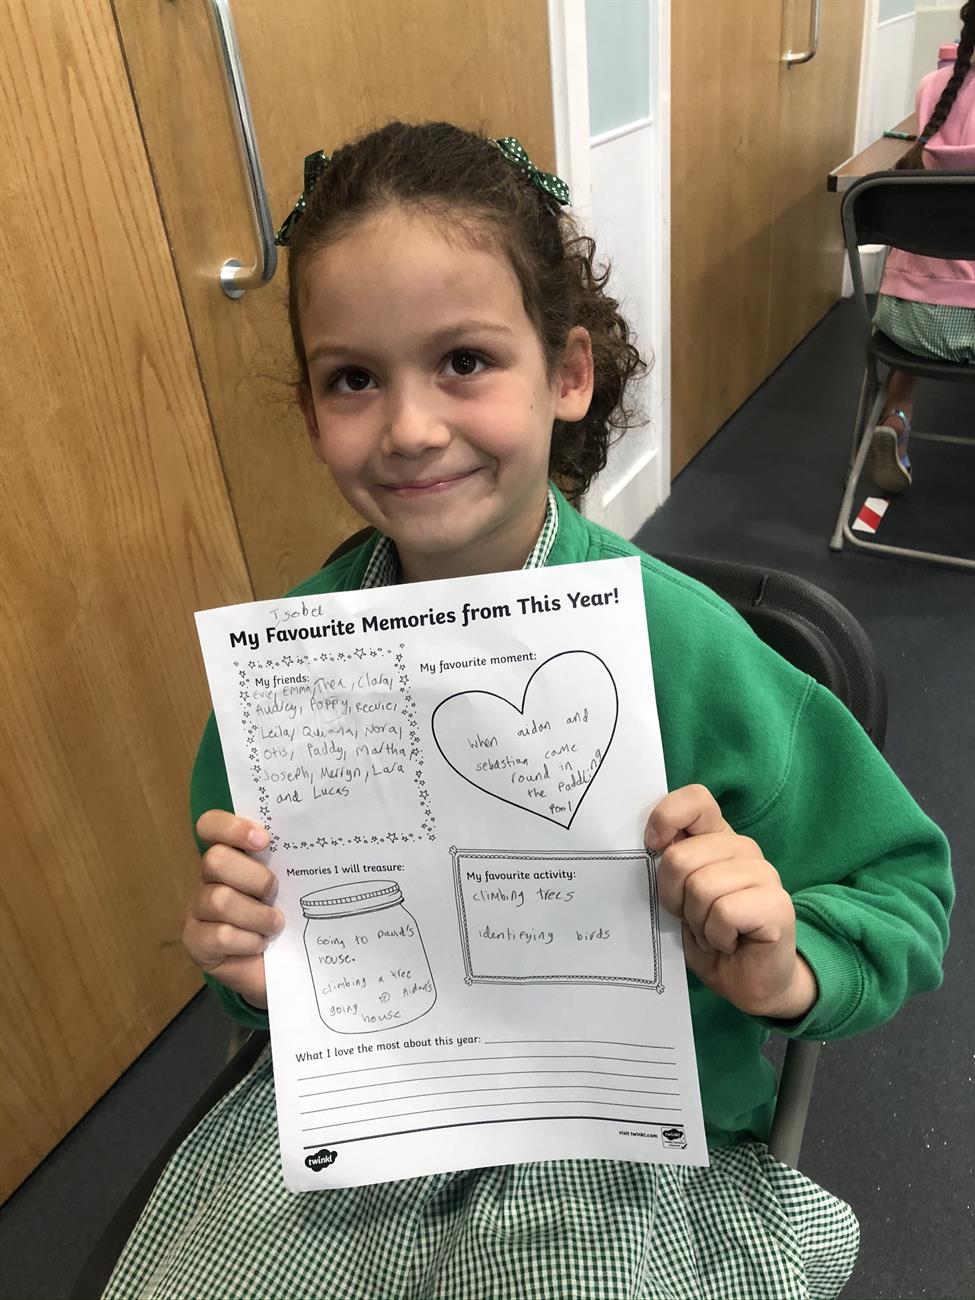 Isobel
My Favourite Memories from This Year!
My friends:
Evie, Emma, Thea, Clara,
Audrey, Poppy, Reevie,
Leila, Quiana, Nora,
Otis, Paddy, Martha,
Joseph, Merryn, Lara
and Lucas
My favourite moment:
when aidan and
sebastian came
round in
the paddling
pool
Memories I will treasure:
Going to David's
house.
climbing a tree
going to Aidan's
house
My favourite activity:
climbing trees
identifying birds
What I love the most about this year:
twinkl
visit twinkl.com
twinkl